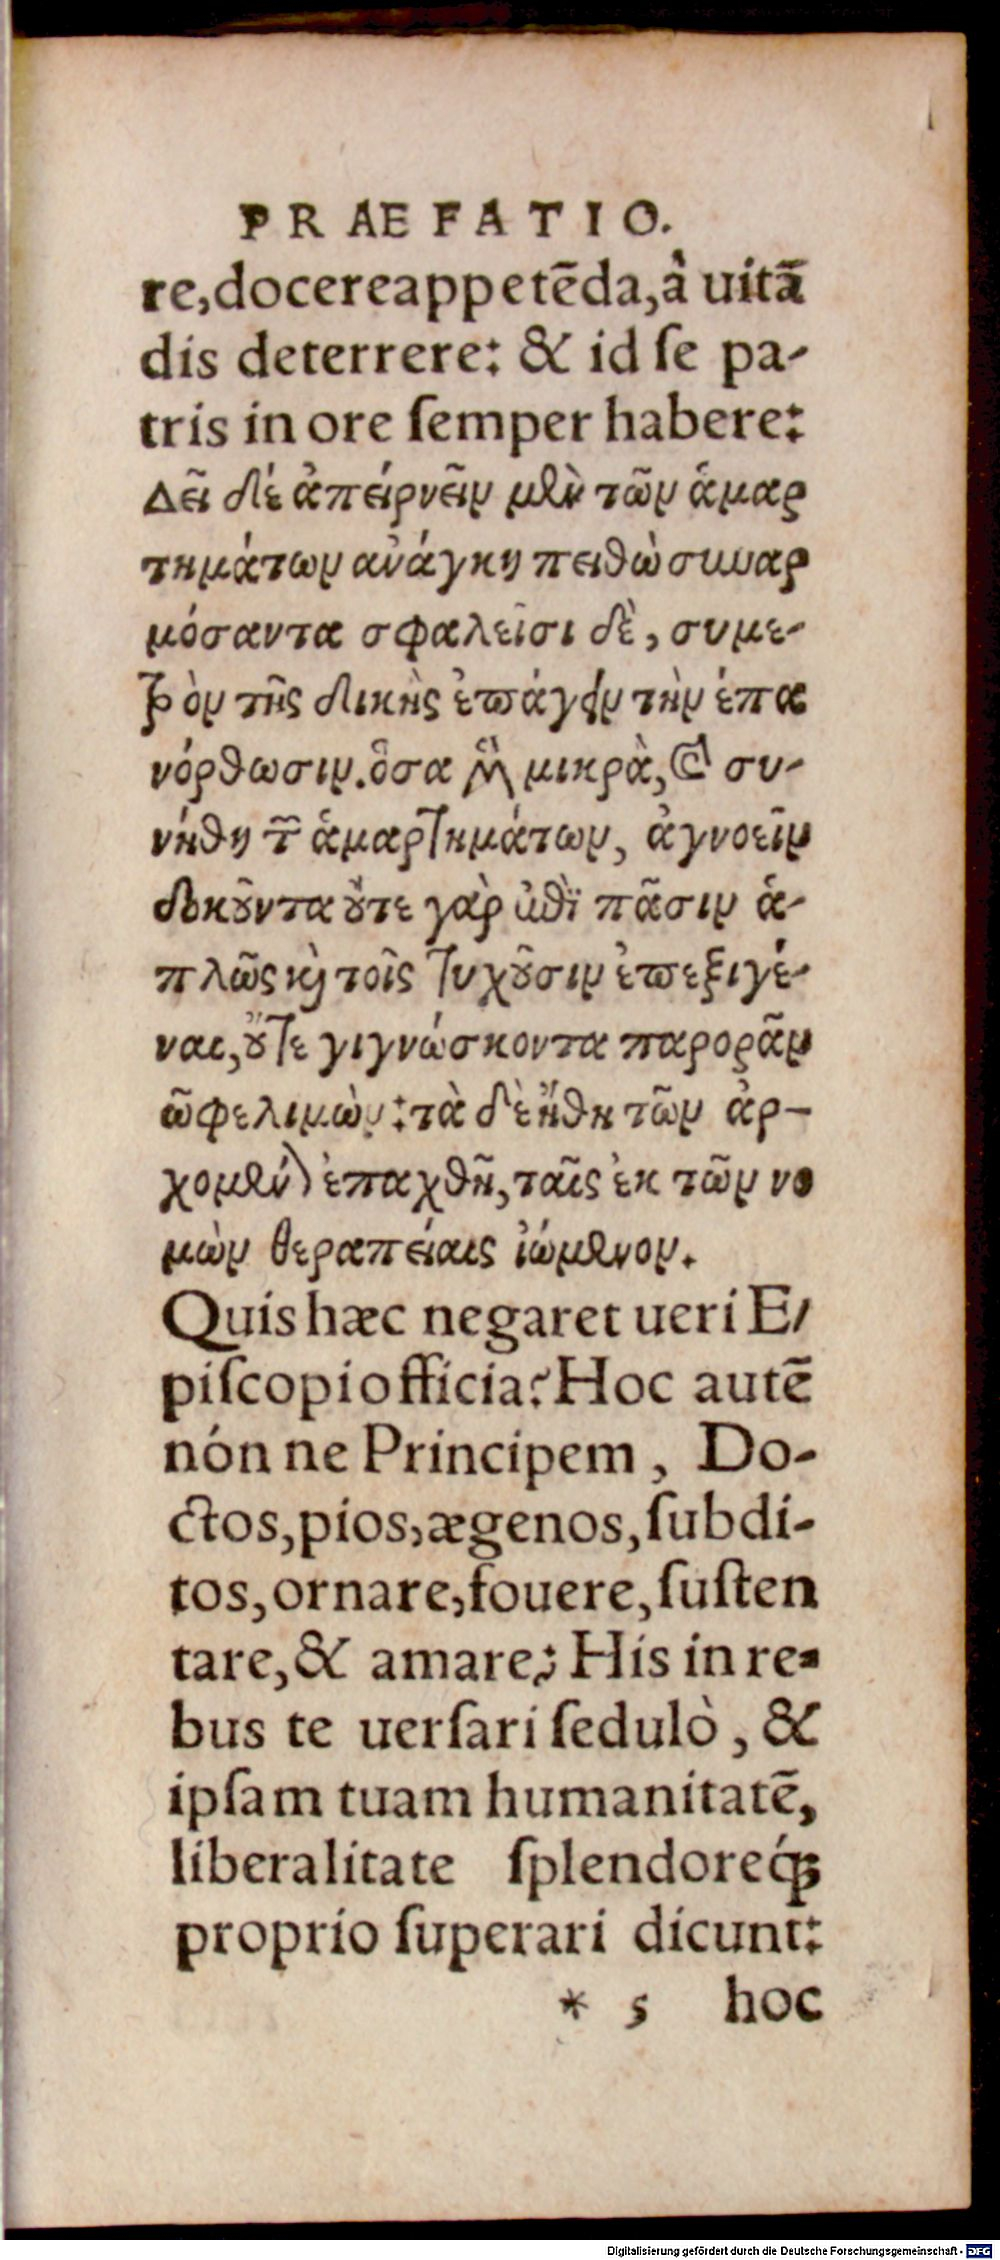 PRAEFATIO.
re,docereappetēda,à uitā
dis deterrere: & id ſe pa-
tris in ore ſemper habere:
Δεῖ δέ ἀπείργεῖν μὲν τῶν ἁμαρ
τημάτων ἀνάγκῃ πειθὼ συναρ
μόσαντα σφαλεῖσι δὲ, συμε-
τρὸν τῆς δικὴς ἐπάγειν τὴν ἐπα
νόρθωσιν.ὅσα ἢ μικρὰ, συ-
νήθη τῶ ἁμαρτημάτων, ἀγνοεῖν
δοκοῦντα οὔτε γὰρ πᾶσιν ἁ-
πλῶς καὶ τοῖς τυχοῦσιν ἐπεξιγέ-
ναι,οὔτε γιγνώσκοντα παρορᾶν
ὦφελιμὼν:τὰ δὲ ἤθη τῶν ἀρ-
χομένων ἐπαχθῆ,ταῖς ἐκ τῶν νο
μὼν θεραπείαις ἰώμενον.
Quis hæc negaret ueri E-
piſcopi officia? Hoc autē
nón ne Principem, Do-
ctos,pios,ægenos,ſubdi-
tos,ornare,fouere,ſuſten
tare,& amare? His in re-
bus te uerſari ſedulò, &
ipſam tuam humanitatē,
liberalitate ſplendoreq́;
proprio ſuperari dicunt:
* 5 hoc
Digitalisierung gefördert durch die Deutsche Forschungsgemeinschaft - DFG